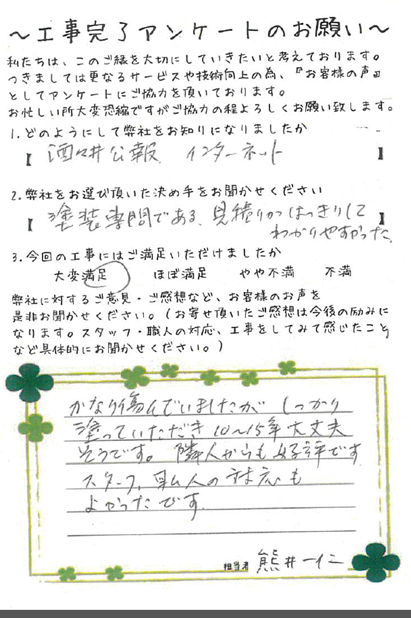 ～工事完了アンケートのお願い～
私たちは、このご縁を大切にしていきたいと考えております。
つきましては更なるサービスや技術向上の為、『お客様の声』
としてアンケートにご協力を頂いております。
お忙しい所大変恐縮ですがご協力の程よろしくお願い致します。
1.どのようにして弊社をお知りになりましたか
【 酒々井公報 インターネット 】
2.弊社をお選び頂いた決め手をお聞かせください
【 塗装専門である、見積りがはっきりして 】
わかりやすかった
3.今回の工事にはご満足いただけましたか
大変満足 ほぼ満足 やや不満 不満
弊社に対するご意見・ご感想など、お客様のお声を
是非お聞かせください。(お寄せ頂いたご感想は今後の励みに
なります。スタッフ・職人の対応、工事をしてみて感じたこと
など具体的にお聞かせください。)
かなり傷んでいましたが しっかり
塗っていただき 10～15年大丈夫
そうです。隣人からも好評です
スタッフ、職人の対応も
よかったです
担当者 熊井一仁